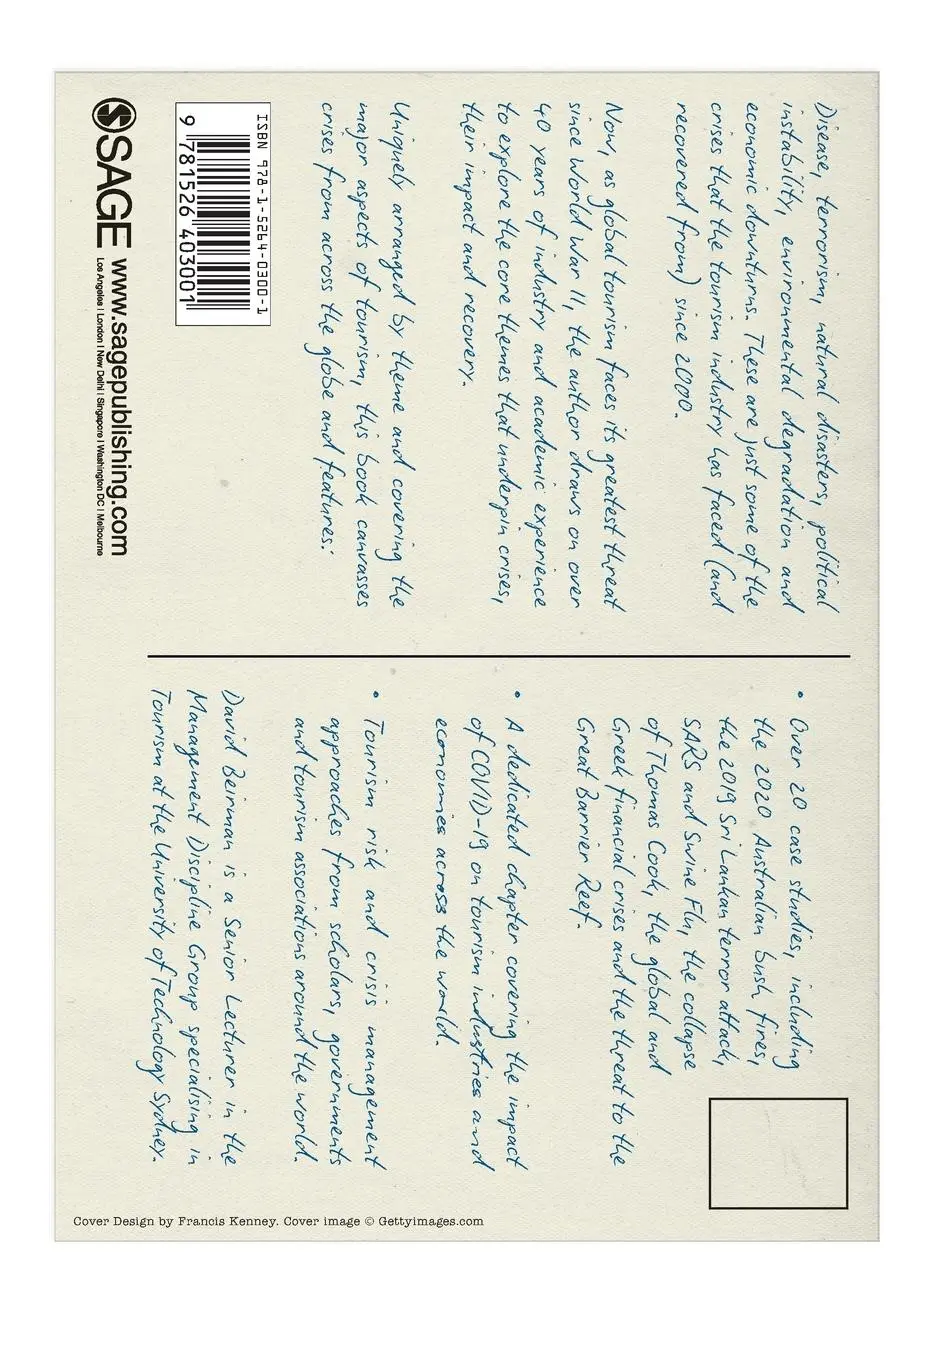 Disease, terrorism, natural disasters, political
instability, environmental degradation and
economic downturns. These are just some of the
crises that the tourism industry has faced (and
recovered from) since 2000.
Now, as global tourism faces its greatest threat
since World War II, the author draws on over
40 years of industry and academic experience
to explore the core themes that underpin crises,
their impact and recovery.
Uniquely arranged by theme and covering the
major aspects of tourism, this book canvasses
crises from across the globe and features:
ISBN 978-1-5264-0300-1
9 781526 403001
SAGE www.sagepublishing.com
Los Angeles | London | New Delhi | Singapore | Washington DC | Melbourne
• Over 20 case studies, including
the 2020 Australian bush fires,
the 2019 Sri Lankan terror attack,
SARS and Swine Flu, the collapse
of Thomas Cook, the global and
Greek financial crises and the threat to the
Great Barrier Reef.
• A dedicated chapter covering the impact
of COVID-19 on tourism industries and
economies across the world.
• Tourism risk and crisis management
approaches from scholars, governments
and tourism associations around the world.
David Beirman is a Senior Lecturer in the
Management Discipline Group specialising in
Tourism at the University of Technology Sydney.
Cover Design by Francis Kenney. Cover image © Gettyimages.com